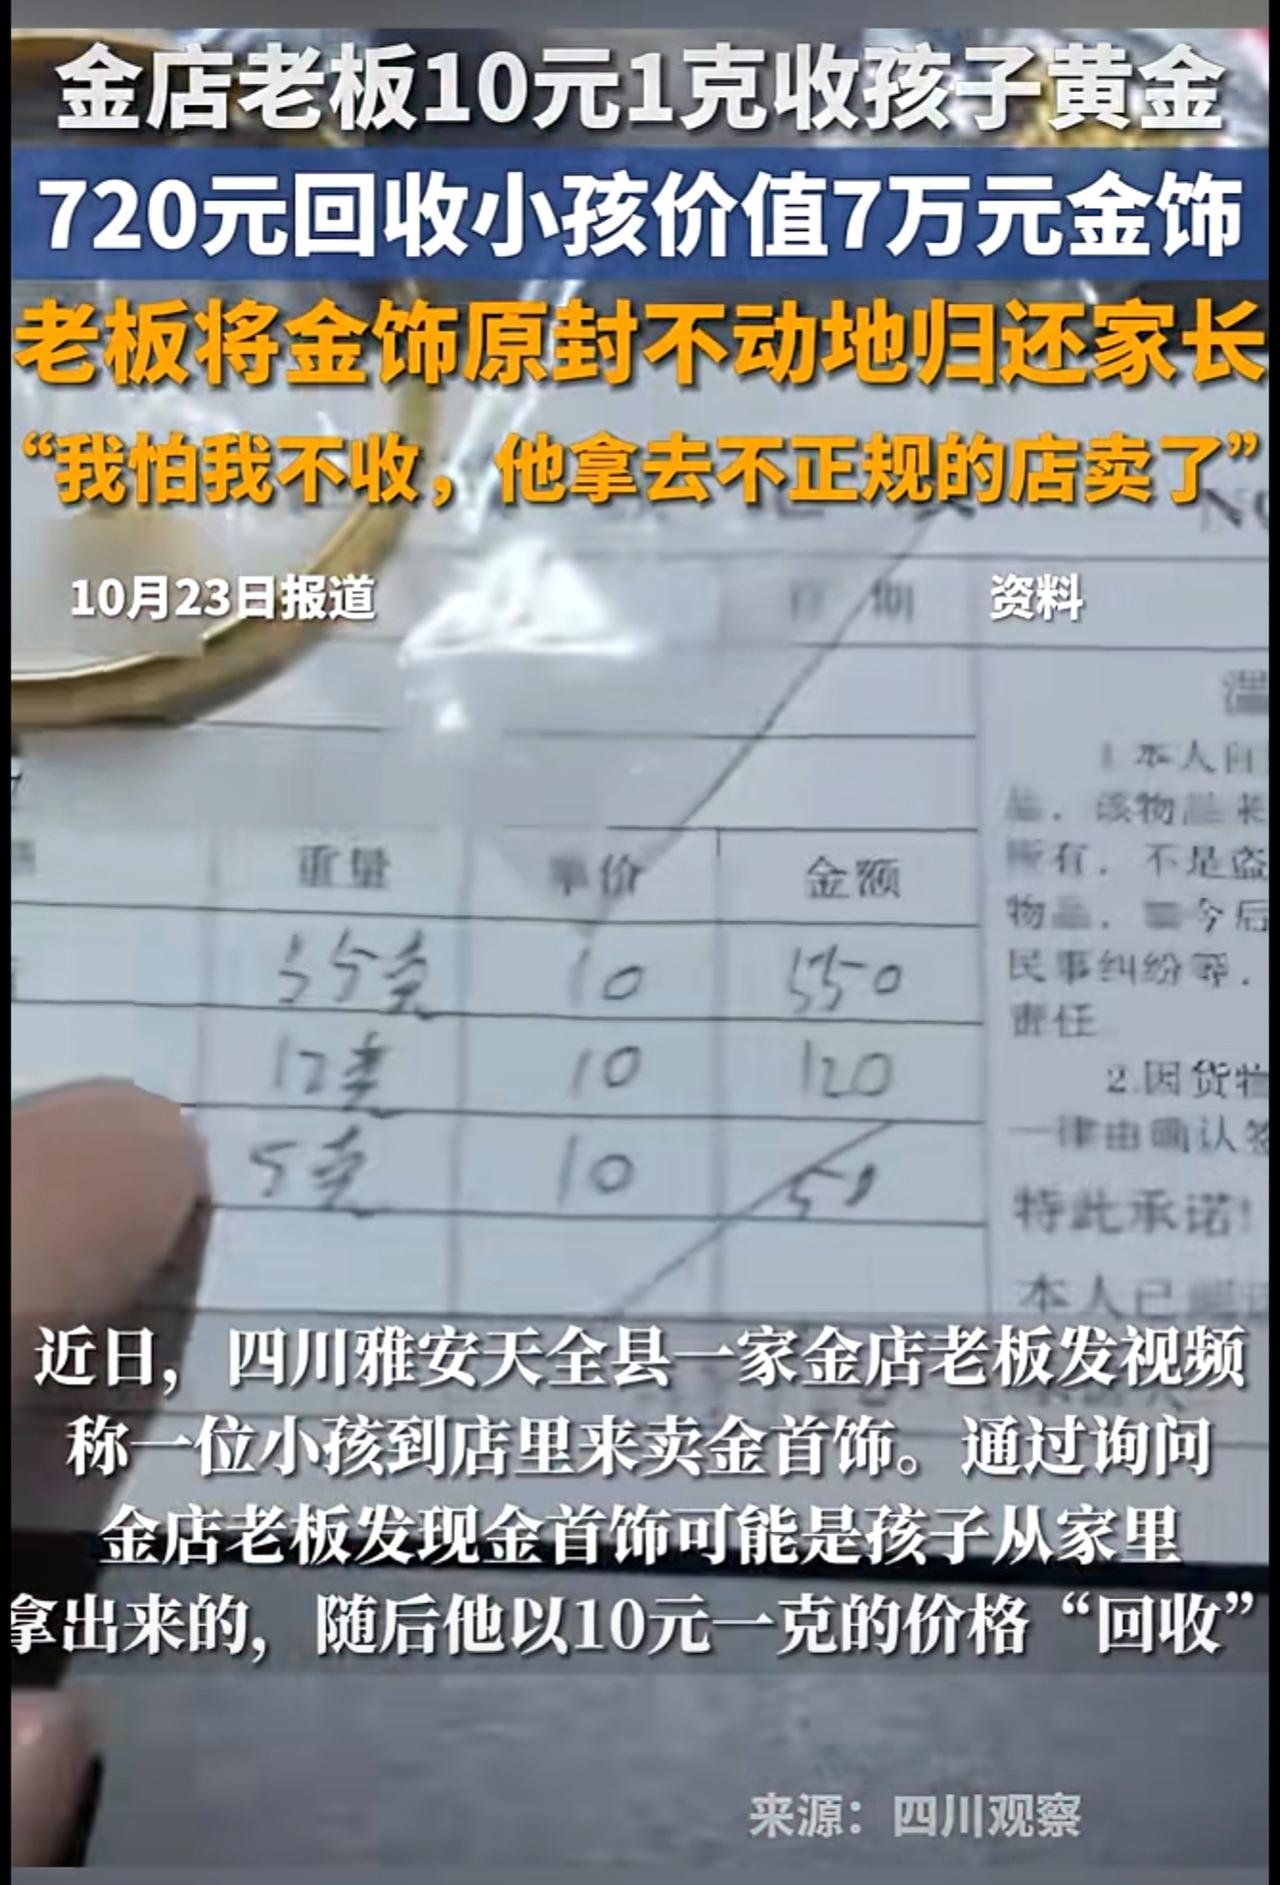 金店老板10元1克收孩子黄金
720元回收小孩价值7万元金饰
老板将金饰原封不动地归还家长
“我怕我不收，他拿去不正规的店卖了”
NO
10月23日报道
日 期
资料
温
1.本人自
品，该物品来
所有，不是盗
物品，如今后
民事纠纷等，
责任
重量 单价 金额
55克 10 550
12克 10 120
5克 10 50
2.因货物
一律由确认签
特此承诺！
本人已
近日，四川雅安天全县一家金店老板发视频
称一位小孩到店里来卖金首饰。通过询问
金店老板发现金首饰可能是孩子从家里
拿出来的，随后他以10元一克的价格“回收”
来源：四川观察